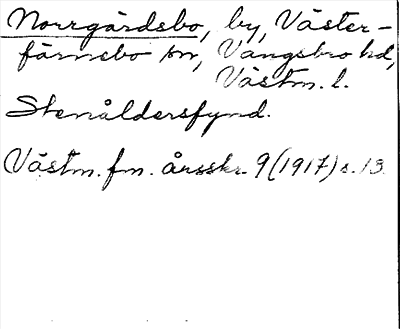 Norrgårdsbo, by, Väster-
färnebo sn, Vangsbro hd,
Västm. l.
Stenåldersfynd.
Västm. fm. årsskr. 9 (1917) s. 13.